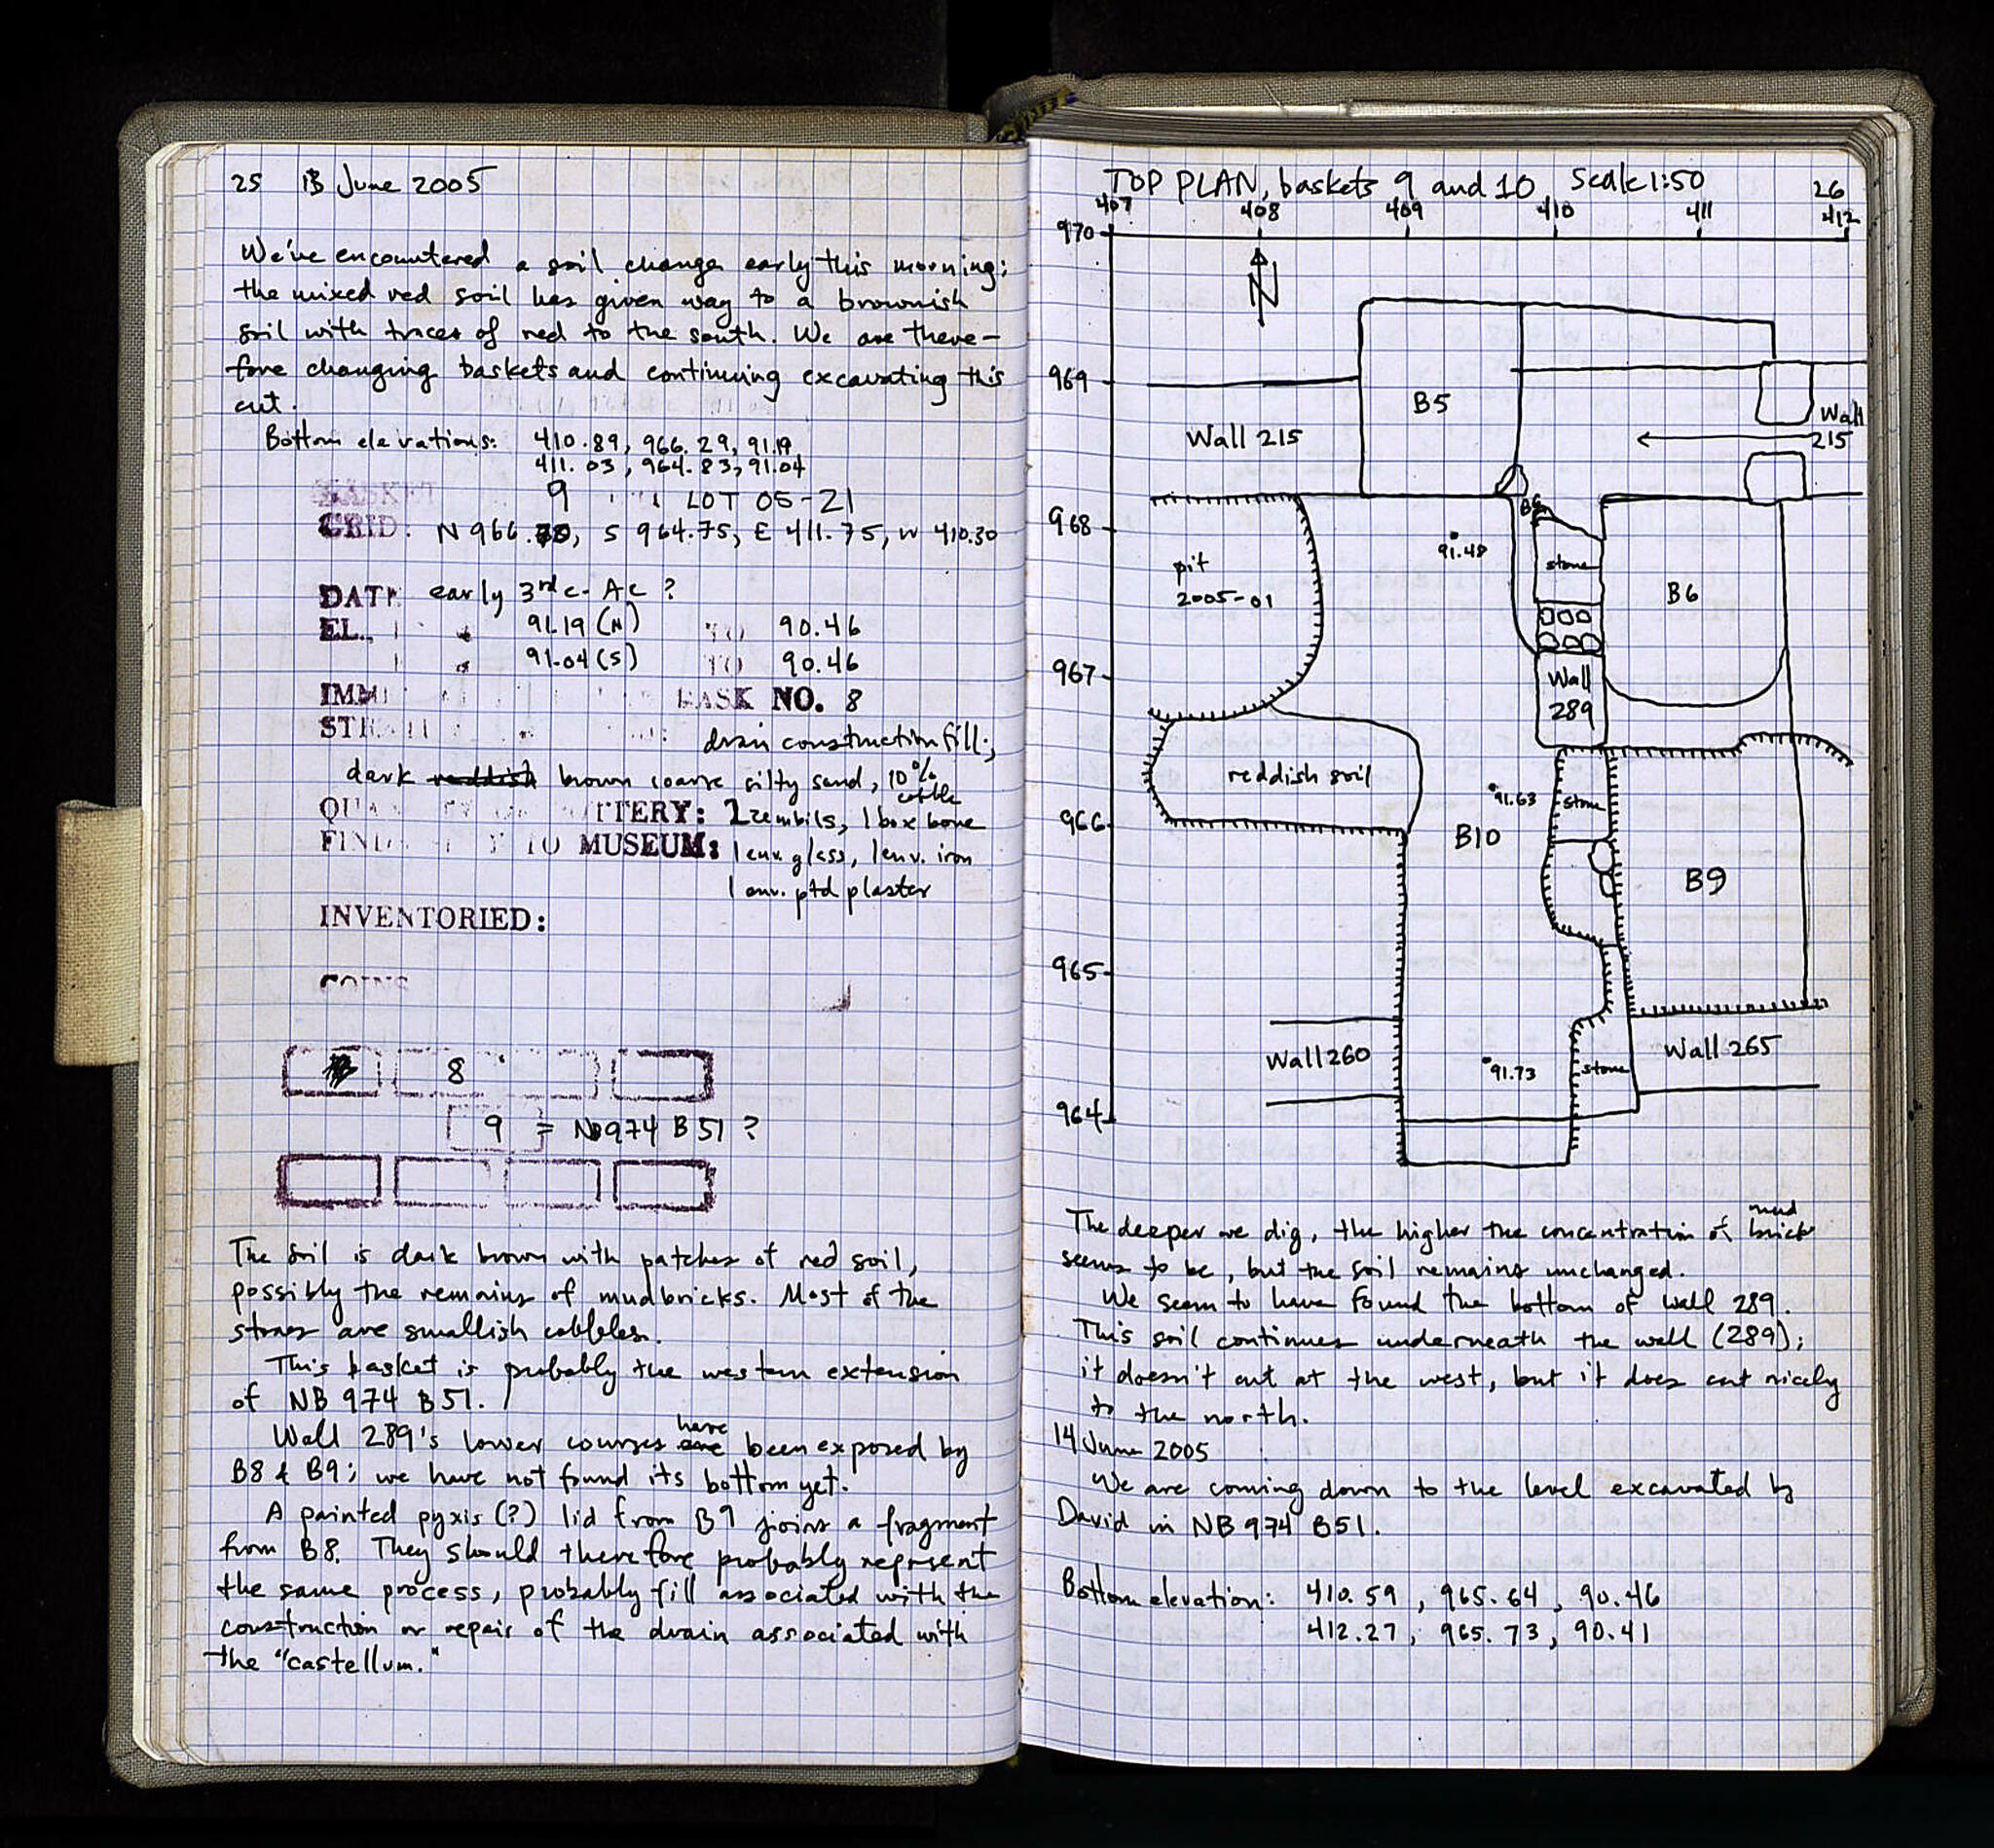 25 13 June 2005
We've encountered a soil change early this morning;
the mixed red soil has given way to a brownish
soil with traces of red to the south. We are there-
fore changing baskets and continuing excavating this
cut.
Bottom elevations: 410.89, 966.29, 91.19
411.03, 964.83, 91.04
BASKET 9 LOT 05-21
GRID: N 966. , S 964.75, E 411.75, W 410.30
DATE early 3rd c. AC ?
EL. 91.19 (N) TO 90.46
91.04 (S) TO 90.46
IMM BASK NO. 8
drain construction fill;
dark reddish brown coarse silty sand, 10%
cobble
QUA TTERY: 2 zembils, 1 box bone
FIND TO MUSEUM: 1 env. glass, 1 env. iron
1 env. ptd plaster
INVENTORIED:
COINS
8
9 = NB 974 B51 ?
The soil is dark brown with patches of red soil,
possibly the remains of mudbricks. Most of the
stones are smallish cobbles.
This basket is probably the western extension
of NB 974 B51.
Wall 289's lower courses have been exposed by
B8 & B9; we have not found its bottom yet.
A painted pyxis (?) lid from B9 joins a fragment
from B8. They should therefore probably represent
the same process, probably fill associated with the
construction or repair of the drain associated with
the "castellum."
TOP PLAN, baskets 9 and 10, Scale 1:50 26
407 408 409 410 411 412
970
N
969
B5
Wall 215
Wall
215
968
91.48
stone
pit
2005-01
B6
967
Wall
289
reddish soil
91.63
stone
966
B10
B9
965
Wall 260
91.73
stone
Wall 265
964
The deeper we dig, the higher the concentration of mud brick
seems to be, but the soil remains unchanged.
We seem to have found the bottom of Wall 289.
This soil continues underneath the wall (289);
it doesn't cut at the west, but it does cut nicely
to the north.
14 June 2005
We are coming down to the level excavated by
David in NB 974 B51.
Bottom elevation: 410.59, 965.64, 90.46
412.27, 965.73, 90.41